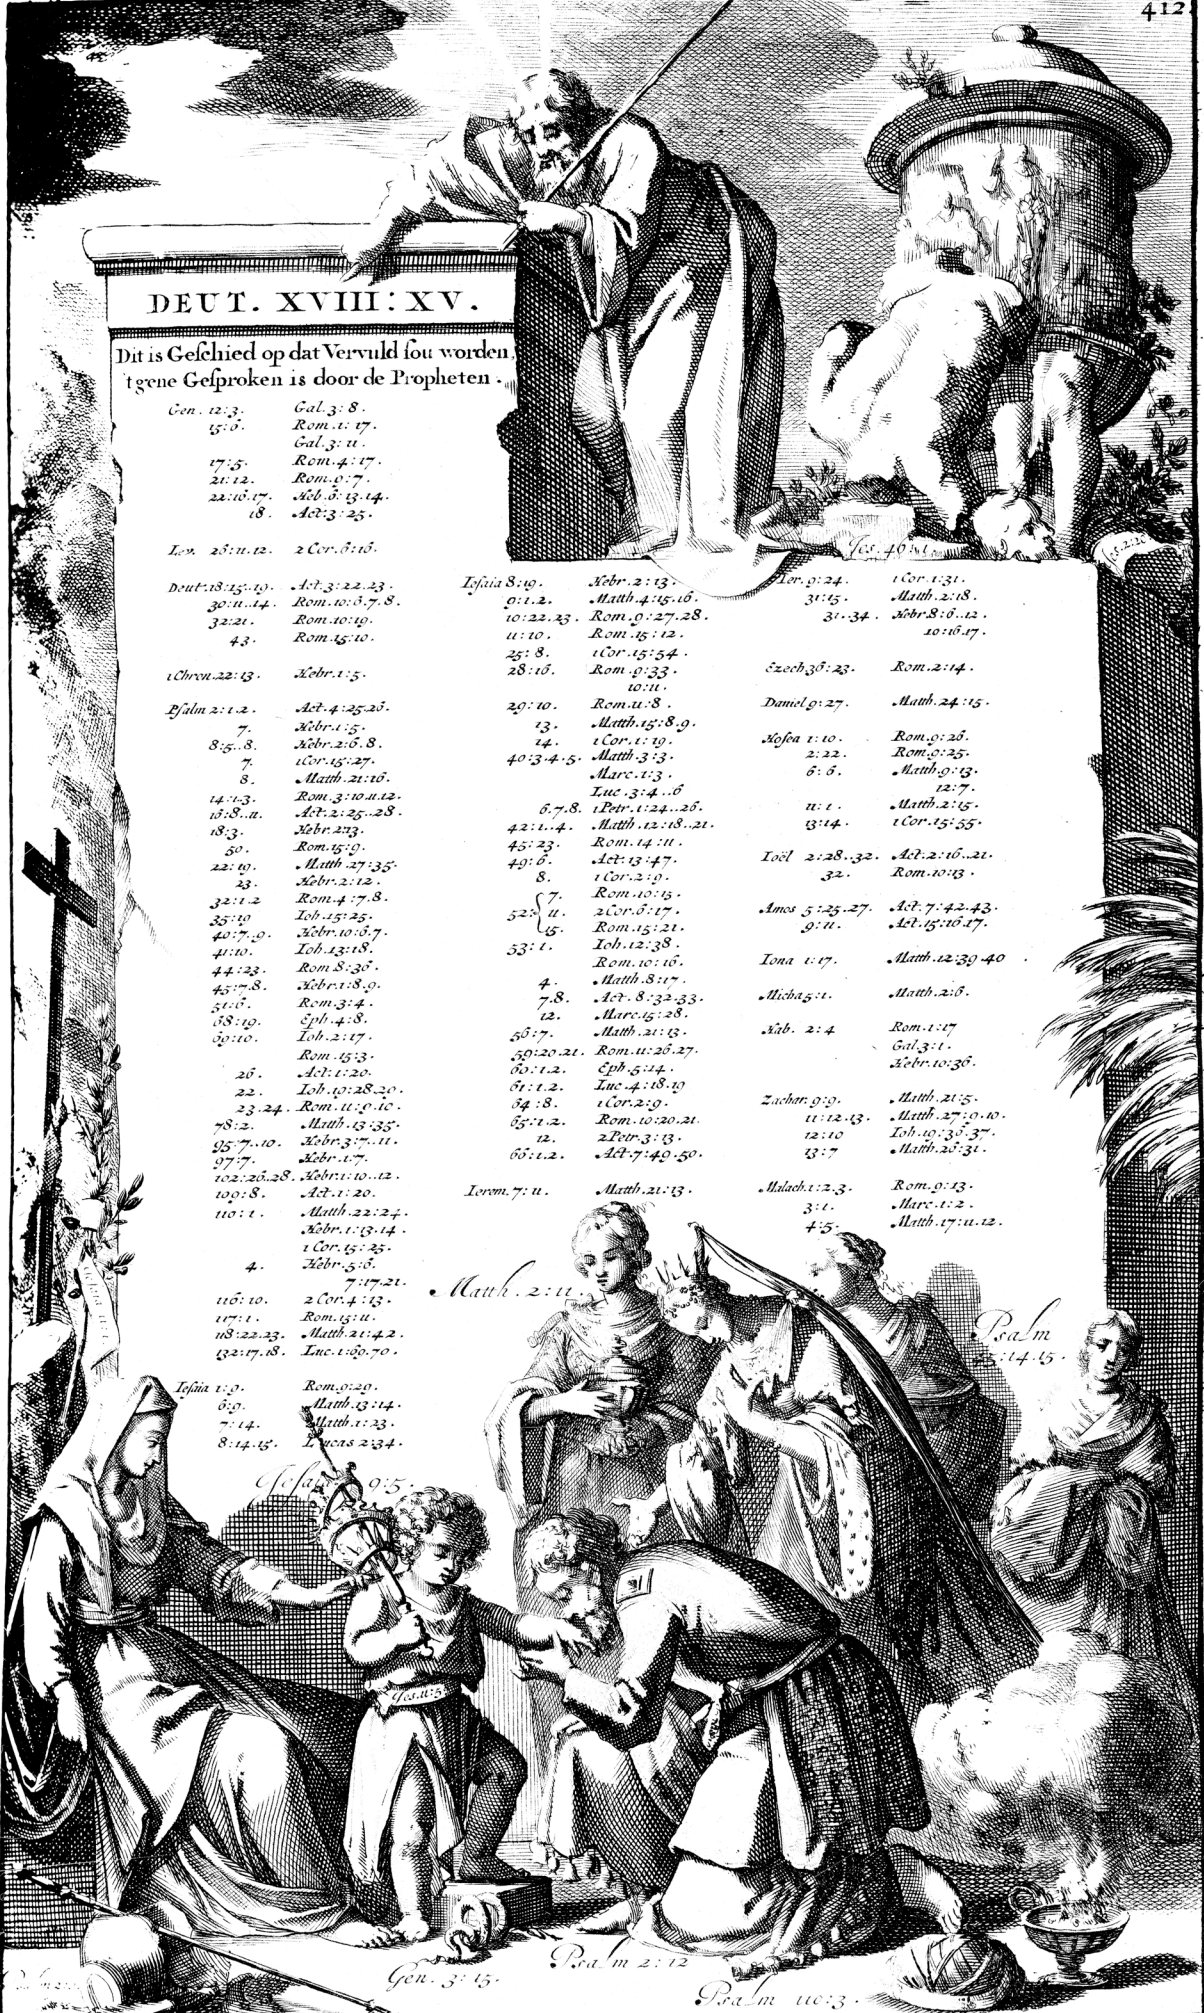 412.
DEUT. XVIII: XV.
Dit is Geſchied op dat Vervuld ſou worden,
't gene Geſproken is door de Propheten.
Gen. 12:3. Gal. 3:8.
15:6. Rom. 1:17.
Gal. 3:11.
17:5. Rom. 4:17.
21:12. Rom. 9:7.
22:16.17. Heb. 6:13.14.
18. Act. 3:25.
Lev. 26:11.12. 2 Cor. 6:16.
Deut. 18:15..19. Act. 3:22.23.
30:11..14. Rom. 10:6.7.8.
32:21. Rom. 10:19.
43. Rom. 15:10.
1 Chron. 22:13. Hebr. 1:5.
Pſalm 2:1.2. Act. 4:25.26.
7. Hebr. 1:5.
8:5..8. Hebr. 2:6.8.
7. 1 Cor. 15:27.
8. Matth. 21:16.
14:1.3. Rom. 3:10.11.12.
16:8..11. Act. 2:25..28.
18:3. Hebr. 2:13.
50. Rom. 15:9.
22:19. Matth. 27:35.
23. Hebr. 2:12.
32:1.2 Rom. 4:7.8.
35:19 Ioh. 15:25.
40:7..9. Hebr. 10:6.7.
41:10. Ioh. 13:18.
44:23. Rom. 8:36.
45:7.8. Hebr. 1:8.9.
51:6. Rom. 3:4.
68:19. Eph. 4:8.
69:10. Ioh. 2:17.
Rom. 15:3.
26. Act. 1:20.
22. Ioh. 19:28.29.
23.24. Rom. 11:9.10.
78:2. Matth. 13:35.
95:7..10. Hebr. 3:7..11.
97:7. Hebr. 1:7.
102:26..28. Hebr. 1:10..12.
109:8. Act. 1:20.
110:1. Matth. 22:24.
Hebr. 1:13.14
1 Cor. 15:25.
4. Hebr. 5:6.
7:17.21.
116:10. 2 Cor. 4:13.
117:1. Rom. 15:11.
118:22.23. Matth. 21:42.
132:17.18. Luc. 1:69.70.
Ieſaia 1:9. Rom. 9:29.
6:9. Matth. 13:14.
7:14. Matth. 1:23.
8:14.15. Lucas 2:34.
Ieſaia 8:19. Hebr. 2:13.
9:1.2. Matth. 4:15.16.
10:22.23. Rom. 9:27.28.
11:10. Rom. 15:12.
25:8. 1 Cor. 15:54.
28:16. Rom. 9:33.
10:11.
29:10. Rom. 11:8.
13. Matth. 15:8.9.
14. 1 Cor. 1:19.
40:3.4.5. Matth. 3:3.
Marc. 1:3.
Luc. 3:4..6
6.7.8. 1 Petr. 1:24..26.
42:1..4. Matth. 12:18..21.
45:23. Rom. 14:11.
49:6. Act. 13:47.
8. 1 Cor. 2:9.
7. Rom. 10:15.
52: 11. 2 Cor. 6:17.
15. Rom. 15:21.
53:1. Ioh. 12:38.
Rom. 10:16.
4. Matth. 8:17.
7.8. Act. 8:32.33.
12. Marc. 15:28.
56:7. Matth. 21:13.
59:20.21. Rom. 11:26.27.
60:1.2. Eph. 5:14.
61:1.2. Luc. 4:18.19
64:8. 1 Cor. 2:9.
65:1.2. Rom. 10:20.21.
12. 2 Petr. 3:13.
66:1.2. Act. 7:49.50.
Ierem. 7:11. Matth. 21:13.
Jes. 46:1.
Jes. 2:20
Ier. 9:24. 1 Cor. 1:31.
31:15. Matth. 2:18.
31..34 Hebr. 8:6..12.
10:16.17.
Ezech 36:23. Rom. 2:14.
Daniel 9:27. Matth. 24:15.
Hoſea 1:10. Rom. 9:26.
2:22. Rom. 9:25.
6:6. Matth. 9:13.
12:7.
11:1. Matth. 2:15.
13:14. 1 Cor. 15:55.
Ioël 2:28..32. Act. 2:16..21.
32. Rom. 10:13.
Amos 5:25.27. Act. 7:42.43.
9:11. Act. 15:16.17.
Iona 1:17. Matth. 12:39.40
Micha 5:1. Matth. 2:6.
Hab. 2:4 Rom. 1:17
Gal. 3:1.
Hebr. 10:36.
Zachar. 9:9. Matth. 21:5.
11:12.13. Matth. 27:9.10.
12:10 Ioh. 19:36.37.
13:7 Matth. 26:31.
Malach. 1:2.3. Rom. 9:13.
3:1. Marc. 1:2.
4:5. Matth. 17:11.12.
Matth. 2:11.
Psalm
45:14.15.
Jesaia 9:5.
Jes. 11:5.
Gen. 3:15.
Psalm 2:12
Psalm 110:3.